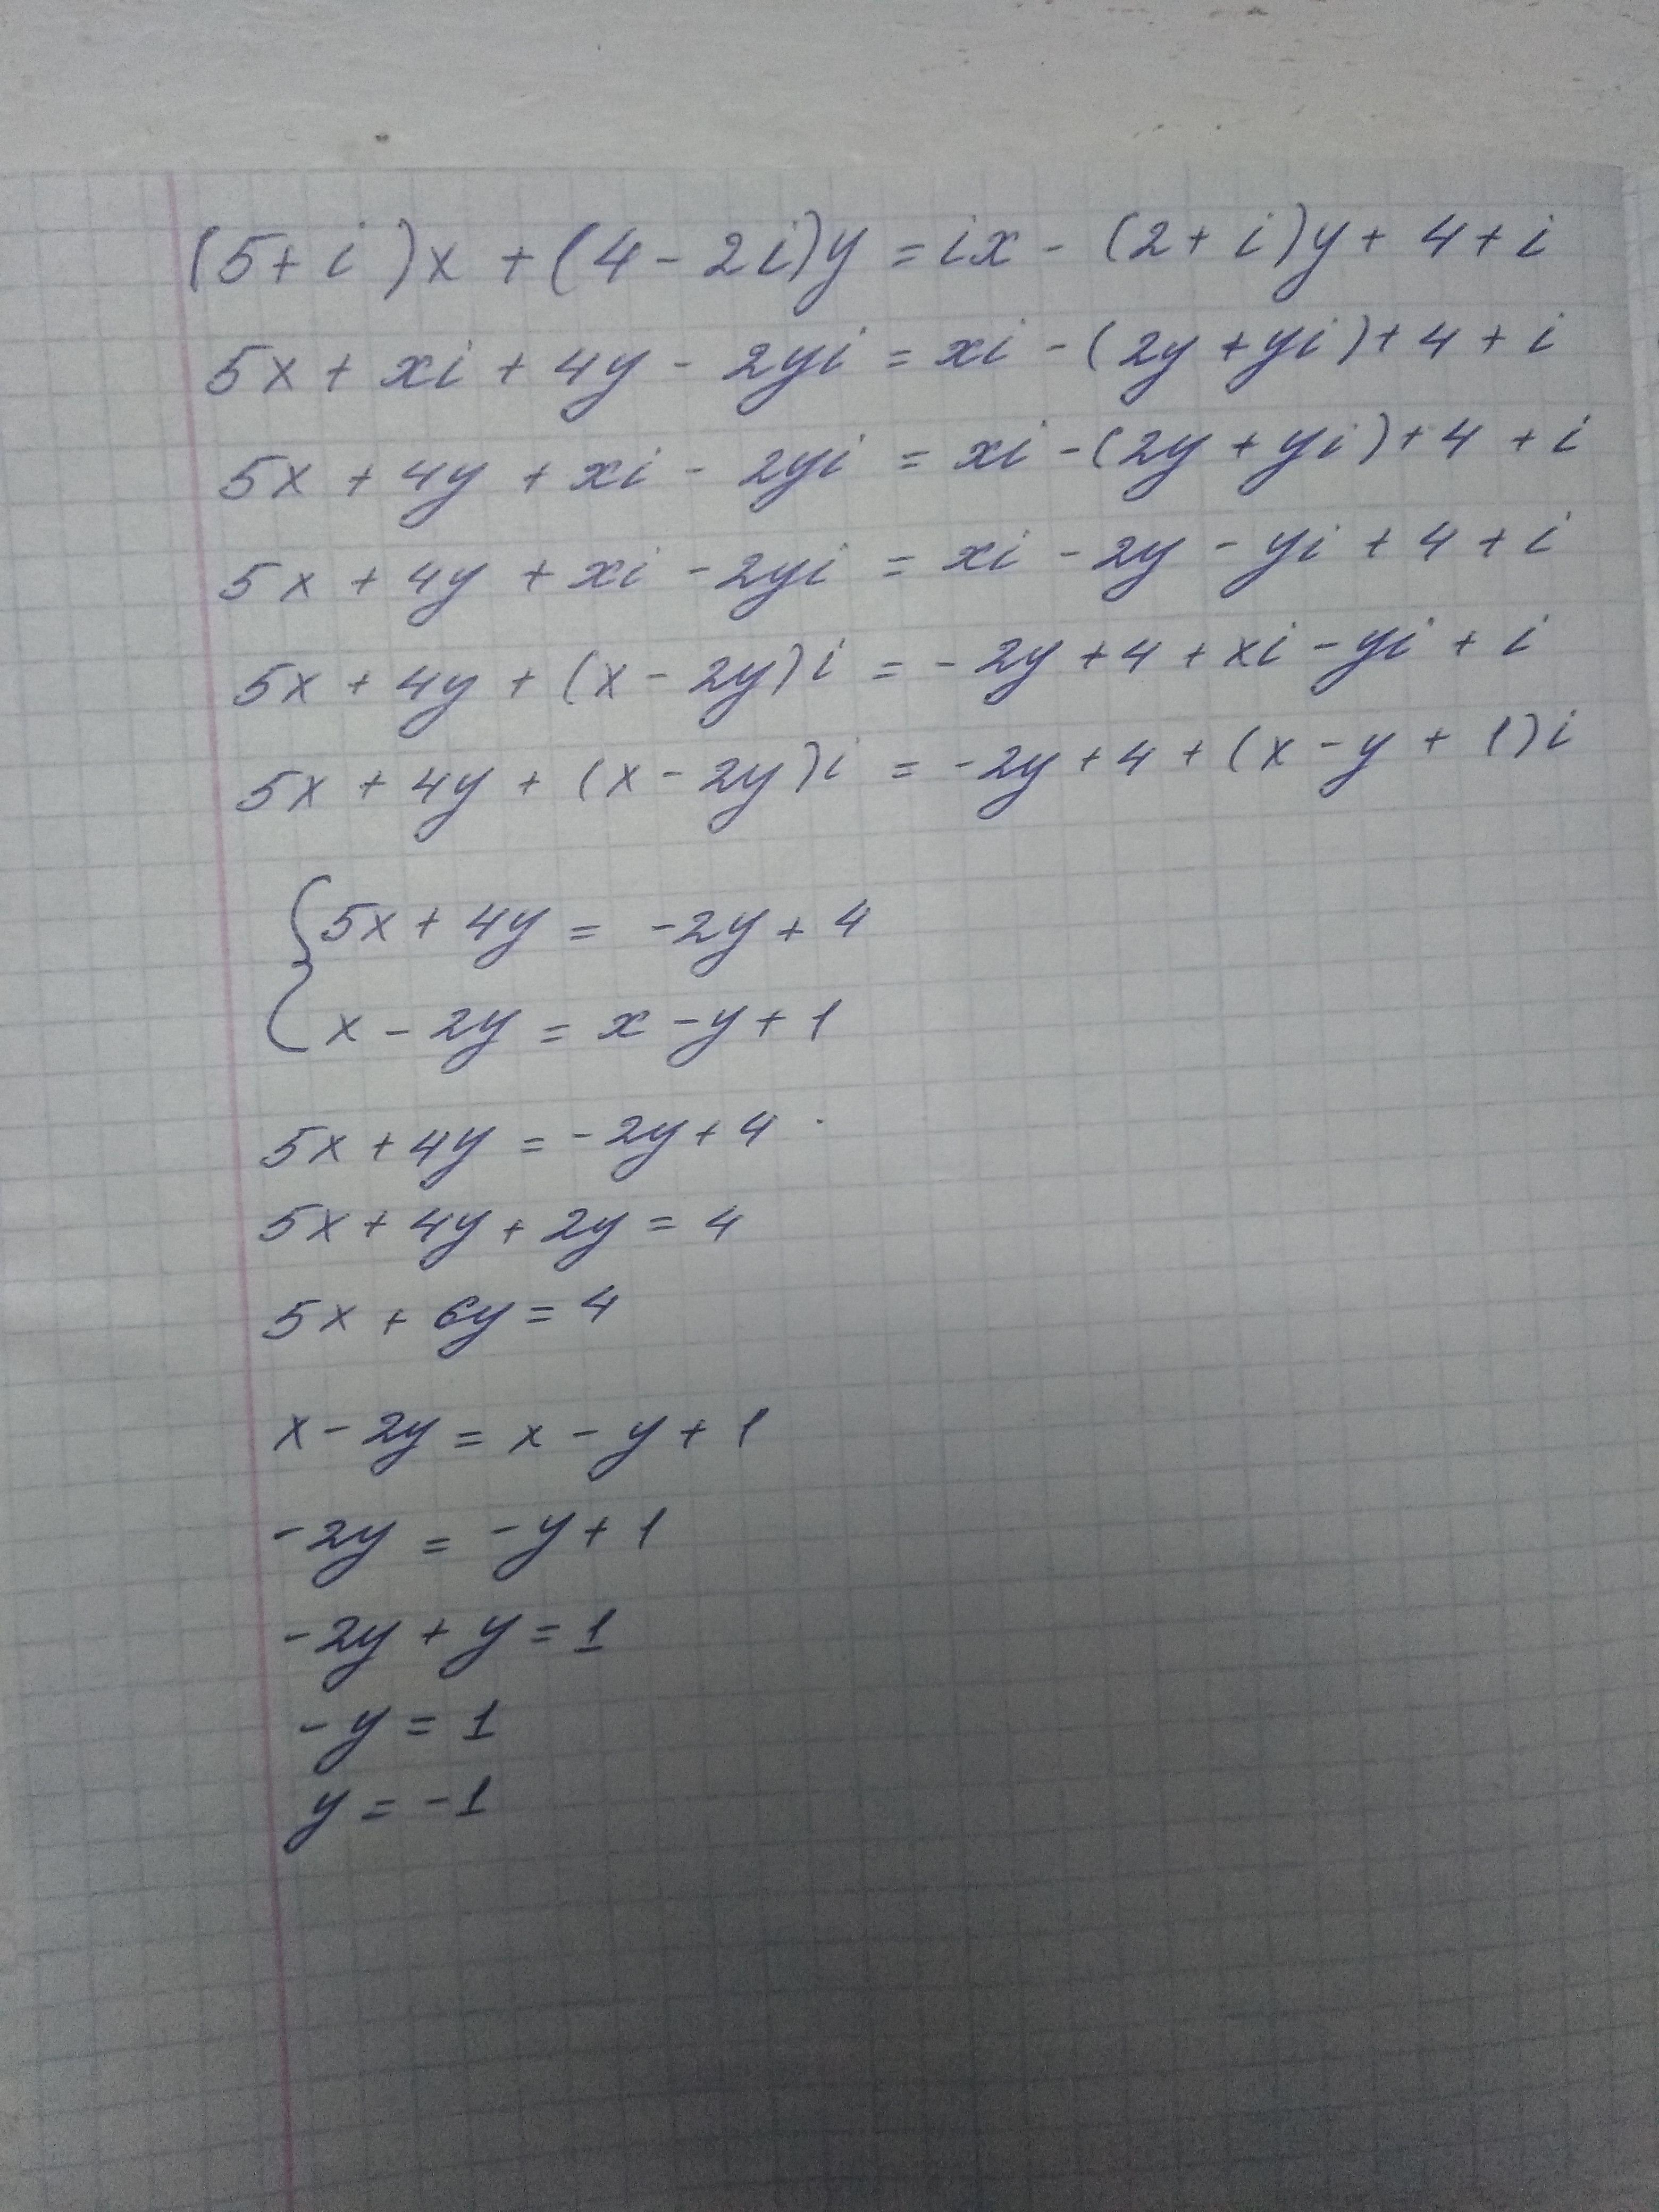 (5+i)x+(4-2i)y=ix-(2+i)y+4+i
5x+xi+4y-2yi=xi-(2y+yi)+4+i
5x+4y+xi-2yi=xi-(2y+yi)+4+i
5x+4y+xi-2yi=xi-2y-yi+4+i
5x+4y+(x-2y)i=-2y+4+xi-yi+i
5x+4y+(x-2y)i=-2y+4+(x-y+1)i
{5x+4y=-2y+4
x-2y=x-y+1
5x+4y=-2y+4
5x+4y+2y=4
5x+6y=4
x-2y=x-y+1
-2y=-y+1
-2y+y=1
-y=1
y=-1